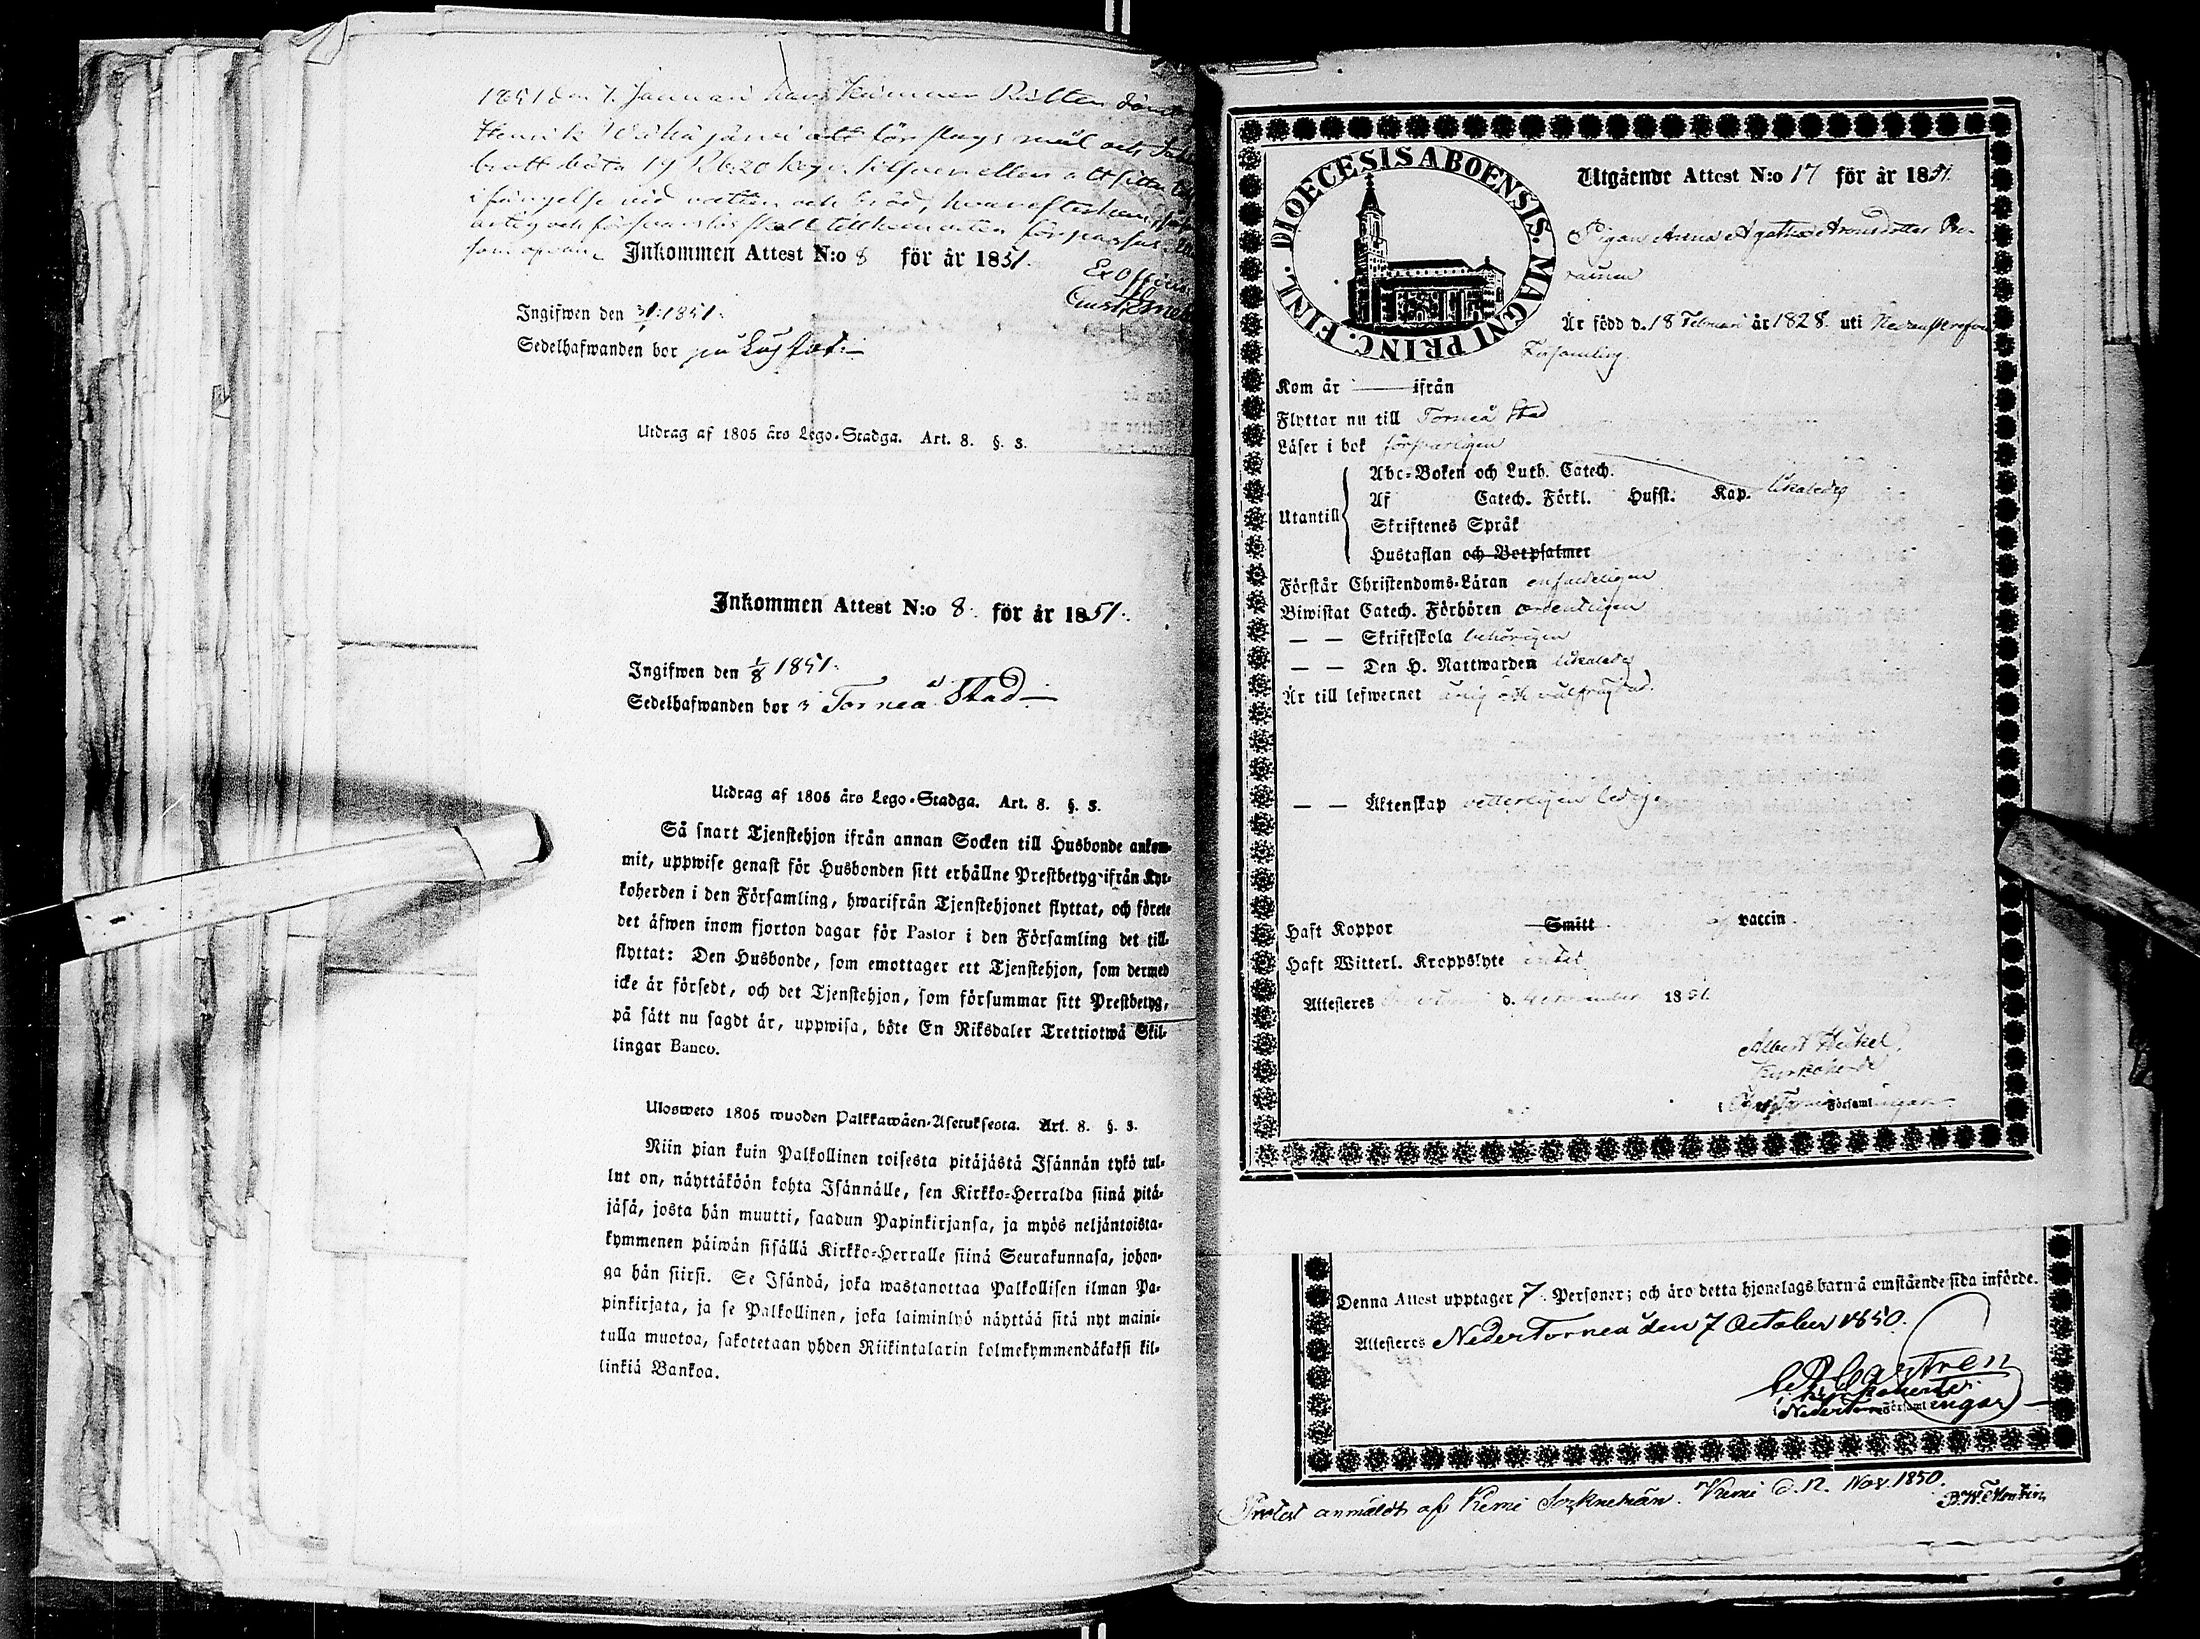 1851 den 7. Januari
Henrik
i fängelse vid vatten och bröd, hvarefter
Inkommen Attest N:o 8 för år 1851.
Ex Officio
Ingifwen den 31/1 1851.
Sedelhafwanden bor på
Utdrag af 1805 års Lego-Stadga. Art. 8. §. 3.
Inkommen Attest N:o 8. för år 1851.
Ingifwen den 1/8 1851.
Sedelhafwanden bor i Torneå Stad.
Utdrag af 1805 års Lego-Stadga. Art. 8. §. 3.
Så snart Tjenstehjon ifrån annan Socken till Husbonde ankom-
mit, uppwise genast för Husbonden sitt erhållne Prestbetyg ifrån Kyr-
koherden i den Församling, hwarifrån Tjenstehjonet flyttat, och förete
det äfwen inom fjorton dagar för Pastor i den Församling det till-
flyttat: Den Husbonde, som emottager ett Tjenstehjon, som dermed
icke är försedt, och det Tjenstehjon, som försummar sitt Prestbetyg,
på sätt nu sagdt är, uppwisa, böte En Riksdaler Trettiotwå Skil-
lingar Banco.
Ulosweto 1805 wuoden Palkkawäen-Asetuksesta. Art. 8. §. 3.
Niin pian kuin Palkollinen toisesta pitäjästä Isännän tykö tul-
lut on, näyttäköön kohta Isännälle, sen Kirkko-Herralda siinä pitä-
jäsä, josta hän muutti, saadun Papinkirjansa, ja myös neljäntoista-
kymmenen päiwän sisällä Kirkko-Herralle siinä Seurakunnasa, johon-
ga hän siirsi. Se Isändä, joka wastanottaa Palkollisen ilman Pa-
pinkirjata, ja se Palkollinen, joka laiminlyö näyttää sitä nyt maini-
tulla muotoa, sakotetaan yhden Riikintalarin kolmekymmendäkaksi kil-
linkiä Bankoa.
DIOECESIS ABOENSIS. MAGNI PRINC. FINL.
Utgående Attest N:o 17 för år 1851.
Pigan Anna Agatha Aronsdotter
Är född d. 18 Februari år 1828. uti
Församling
Kom år — ifrån
Flyttar nu till Torneå Stad
Läser i bok försvarligen
Utantill
Abc-Boken och Luth. Catech.
Af Catech. Förkl. Hufst. Kap. likaledes
Skriftenes Språk
Hustaflan och Botpsalmer
Förstår Christendoms-Läran enfaldeligen
Biwistat Catech. Förhören ordentligen
— — Skriftskola behörigen
— — Den H. Nattwarden likaledes
Är till lefwernet ärlig och välfrejdad.
— — Äktenskap vetterligen ledig
Haft Koppor Smitt vaccin
Haft Witterl. Kroppslyte intet
Attesteres d. 4 November 1851.
Albert Heikel,
Kyrkoherde
Församlingar
Denna Attest upptager 7. Personer; och äro detta hjonelags barn å omstående sida införde.
Attesteres NederTorneå den 7 October 1850.
Castrén
Kyrkoherde
NederTorneå Församlingar
anmäldt af Kemi Socknemän. Kemi d. 12. Nov. 1850.